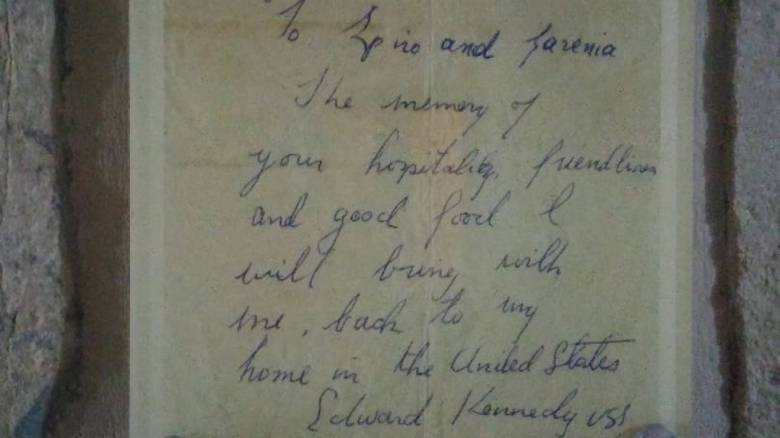 To Spiro and
The memory of
your hospitality, friendliness
and good food I
will bring with
me, back to my
home in the United States
Edward Kennedy